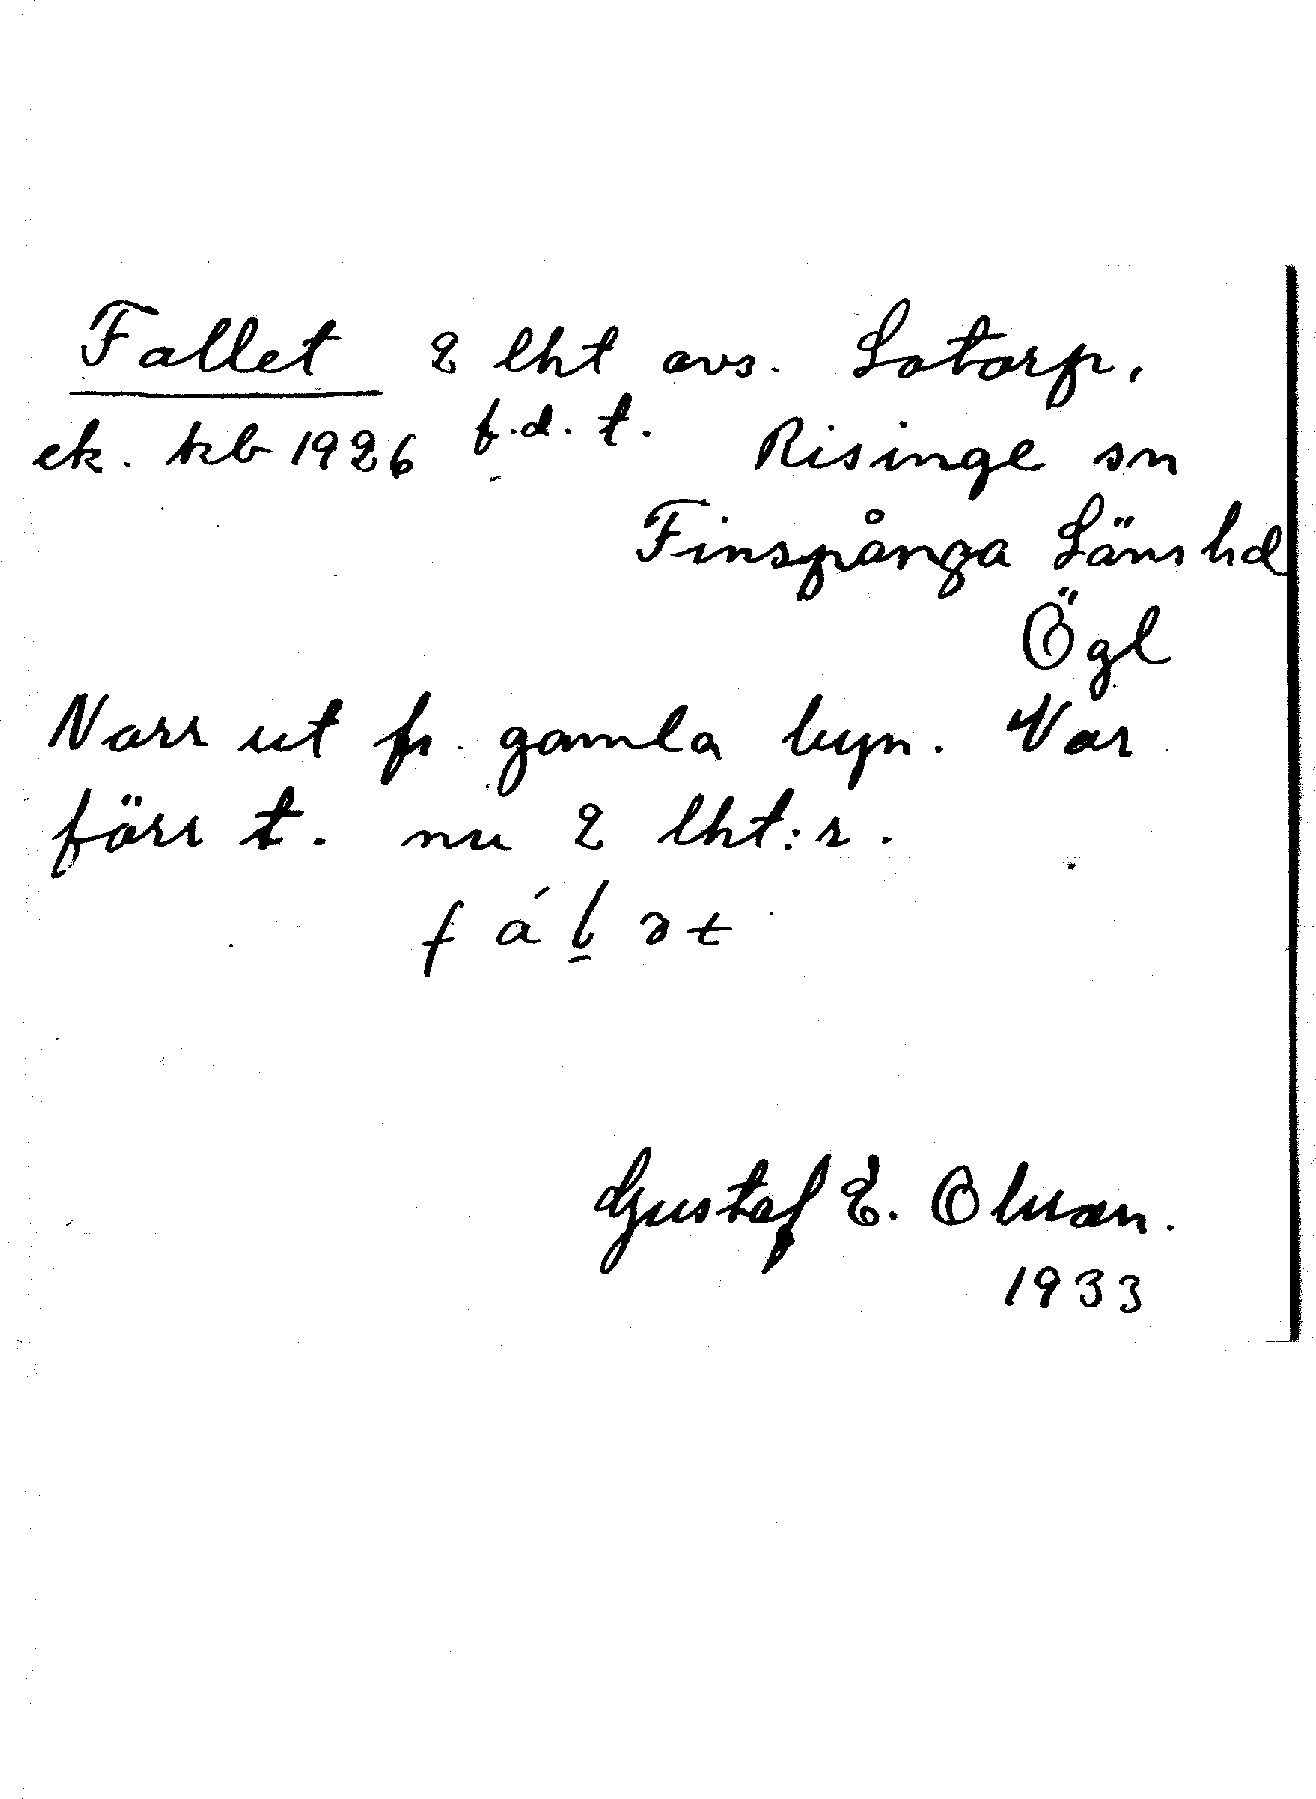 Fallet 2 lht avs. Lotorp,
ek. kb 1926 f.d.t. Risinge sn
Finspånga Läns hd
Ögl
Norr ut fr. gamla byn. Var
förr t. nu 2 lht:r.
Gustaf E.
1933